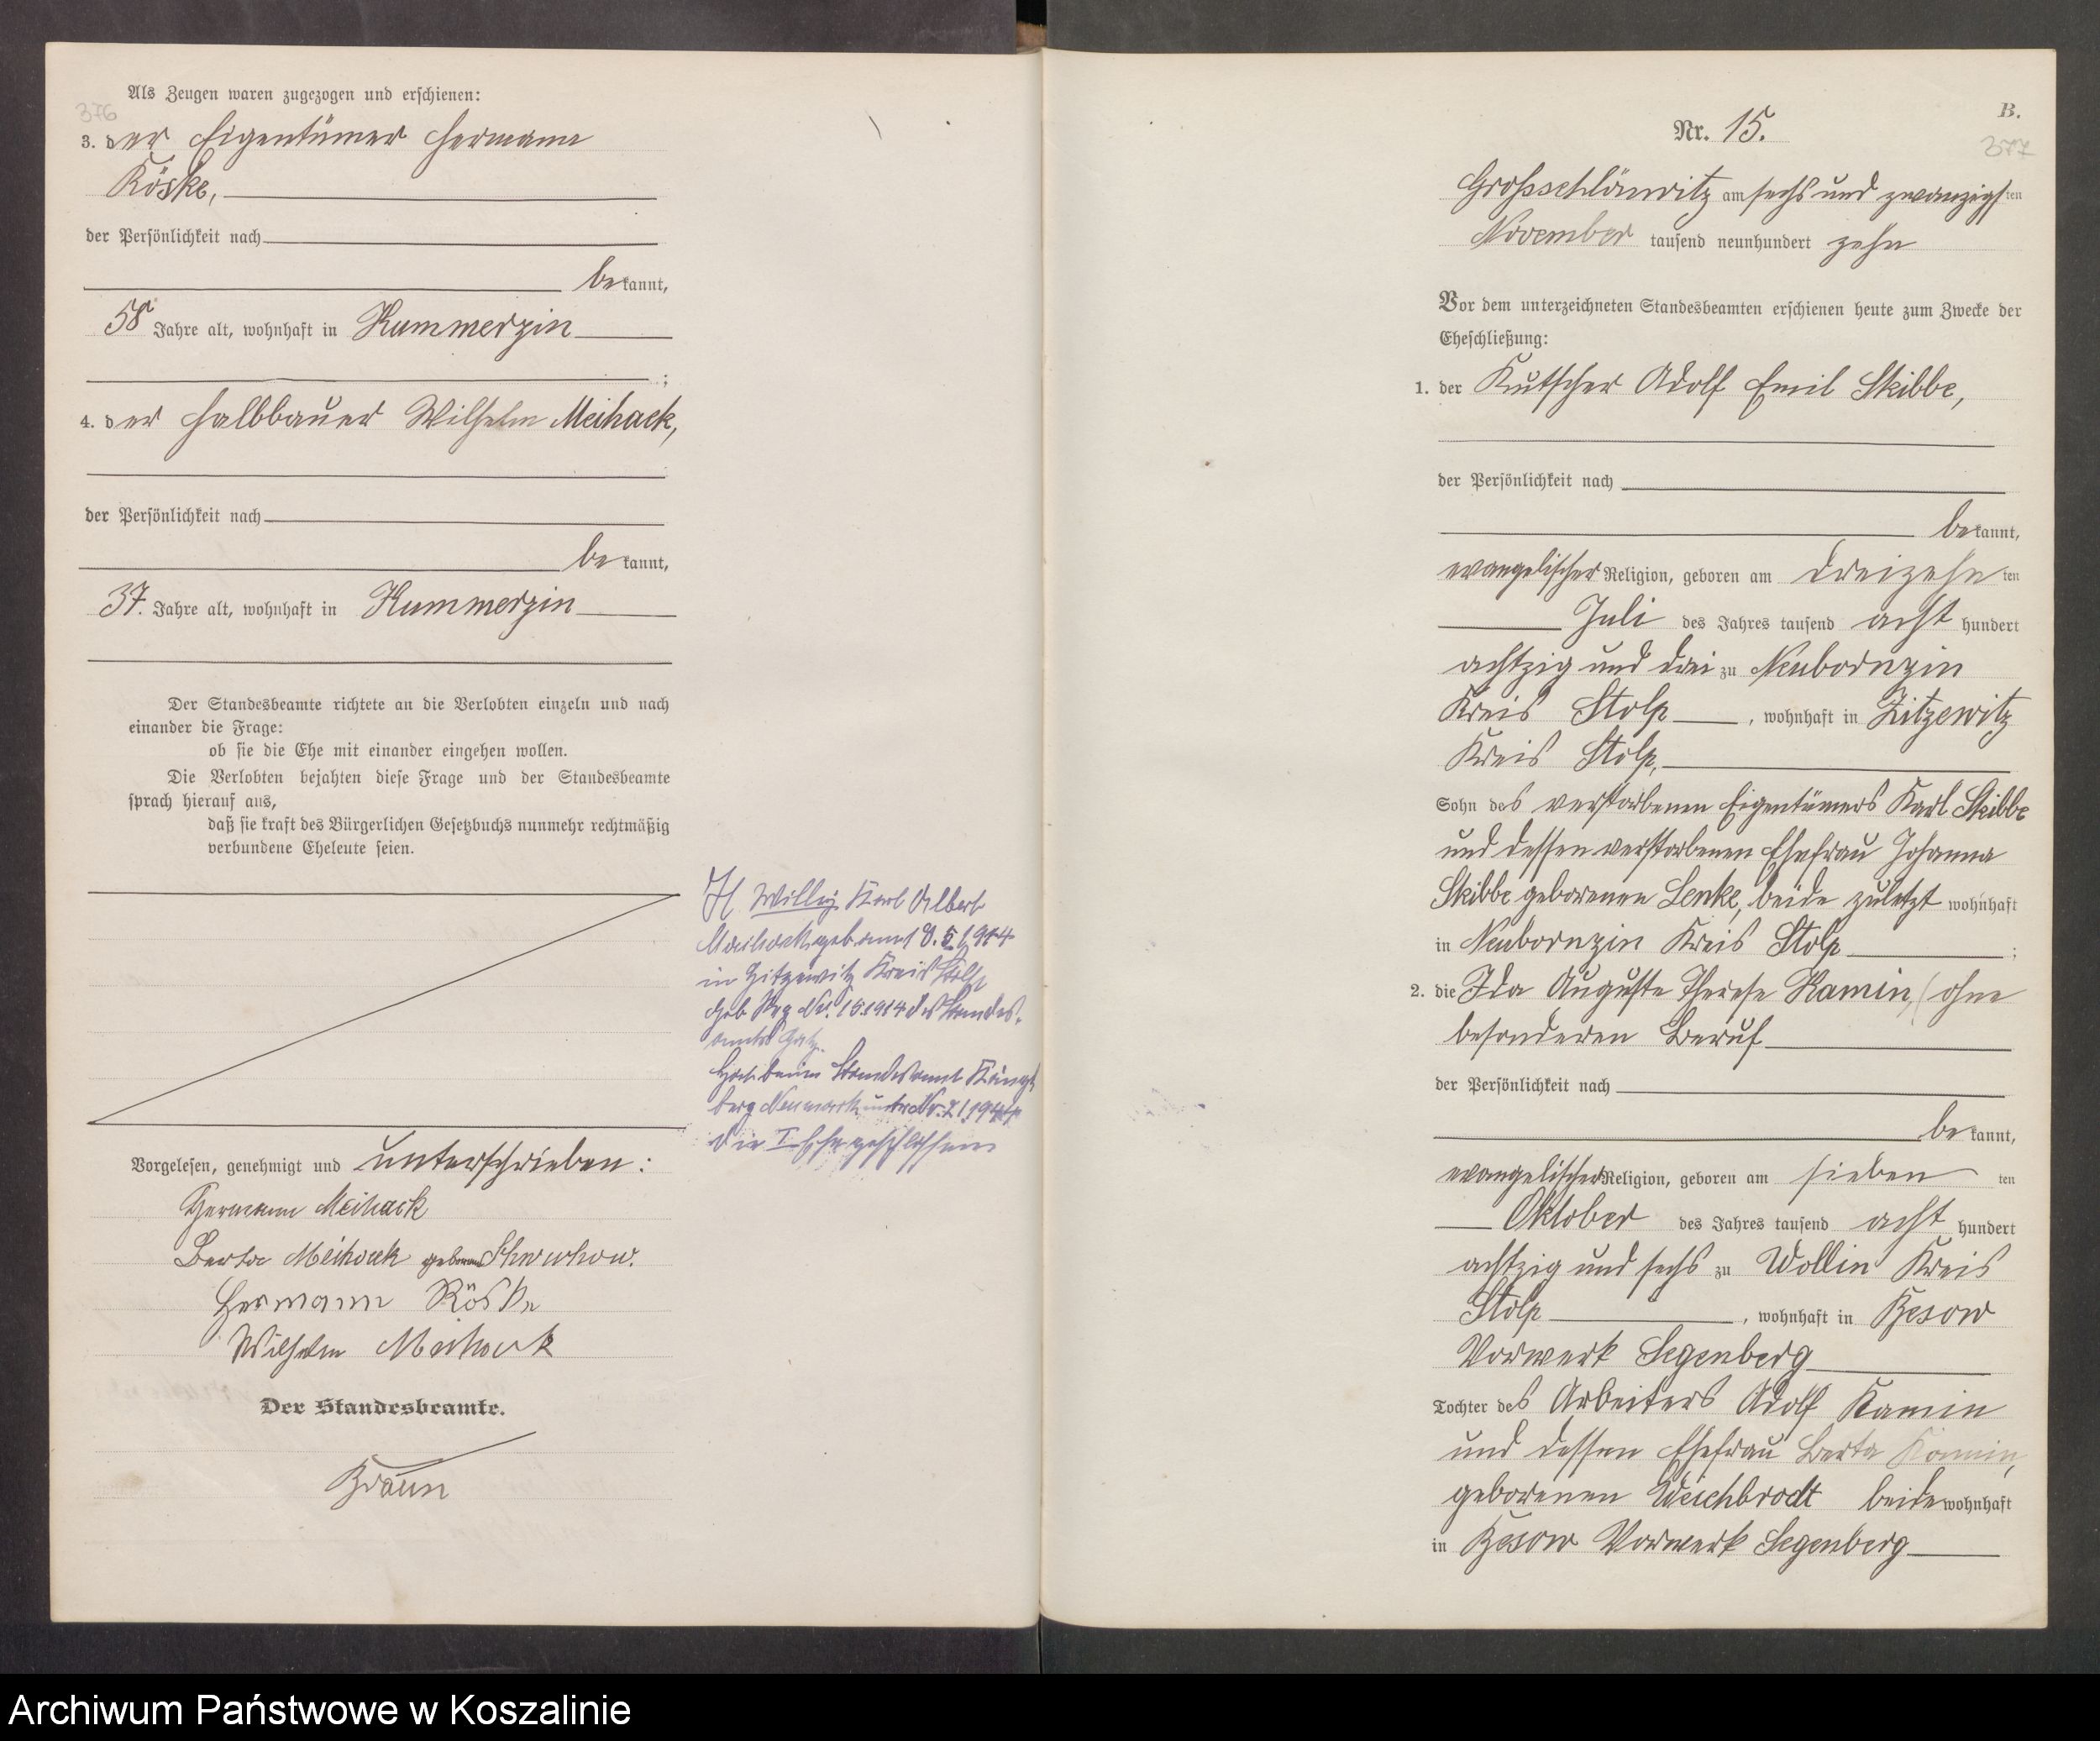 376
Als Zeugen waren zugezogen und erschienen:
3. der Eigentümer Hermann
Röske,
der Persönlichkeit nach
bekannt,
58 Jahre alt, wohnhaft in Kummerzin
;
4. der Halbbauer Wilhelm Meihack,
der Persönlichkeit nach
bekannt,
37. Jahre alt, wohnhaft in Kummerzin
Der Standesbeamte richtete an die Verlobten einzeln und nach
einander die Frage:
ob sie die Ehe mit einander eingehen wollen.
Die Verlobten bejahten diese Frage und der Standesbeamte
sprach hierauf aus,
daß sie kraft des Bürgerlichen Gesetzbuchs nunmehr rechtmäßig
verbundene Eheleute seien.
Vorgelesen, genehmigt und unterschrieben:
Hermann Meihack
Berta Meihack geborene
Hermann Röske
Wilhelm Meihack
Der Standesbeamte.
Braun
Willy Karl Albert
Meihack geb am 8.5.1914
in Zitzewitz Kreis Stolp
Geb Reg Nr. 15.1914 des Standes-
amts
Hat beim Standesamt Königs
berg Neumark unter Nr.
die I Ehe geschlossen
B.
377
Nr. 15.
Grossschlönwitz am sechs und zwanzigsten
November tausend neunhundert zehn
Vor dem unterzeichneten Standesbeamten erschienen heute zum Zwecke der
Eheschließung:
1. der Kutscher Adolf Emil Skibbe,
der Persönlichkeit nach
bekannt,
evangelischer Religion, geboren am dreizehnten
Juli des Jahres tausend acht hundert
achtzig und drei zu Neubornzin
Kreis Stolp, wohnhaft in Zitzewitz
Kreis Stolp,
Sohn des verstorbenen Eigentümers Karl Skibbe
und dessen verstorbenen Ehefrau Johanna
Skibbe geborenen Lenke, beide zuletzt wohnhaft
in Neubornzin Kreis Stolp ;
2. die Ida Auguste Therese Kamin, ohne
besonderen Beruf
der Persönlichkeit nach
bekannt,
evangelischer Religion, geboren am siebenten
Oktober des Jahres tausend acht hundert
achtzig und sechs zu Wollin Kreis
Stolp, wohnhaft in Besow
Vorwerk Segenberg
Tochter des Arbeiters Adolf Kamin
und dessen Ehefrau Berta Kamin,
geborenen Weichbrodt beide wohnhaft
in Besow Vorwerk Segenberg
Archiwum Państwowe w Koszalinie